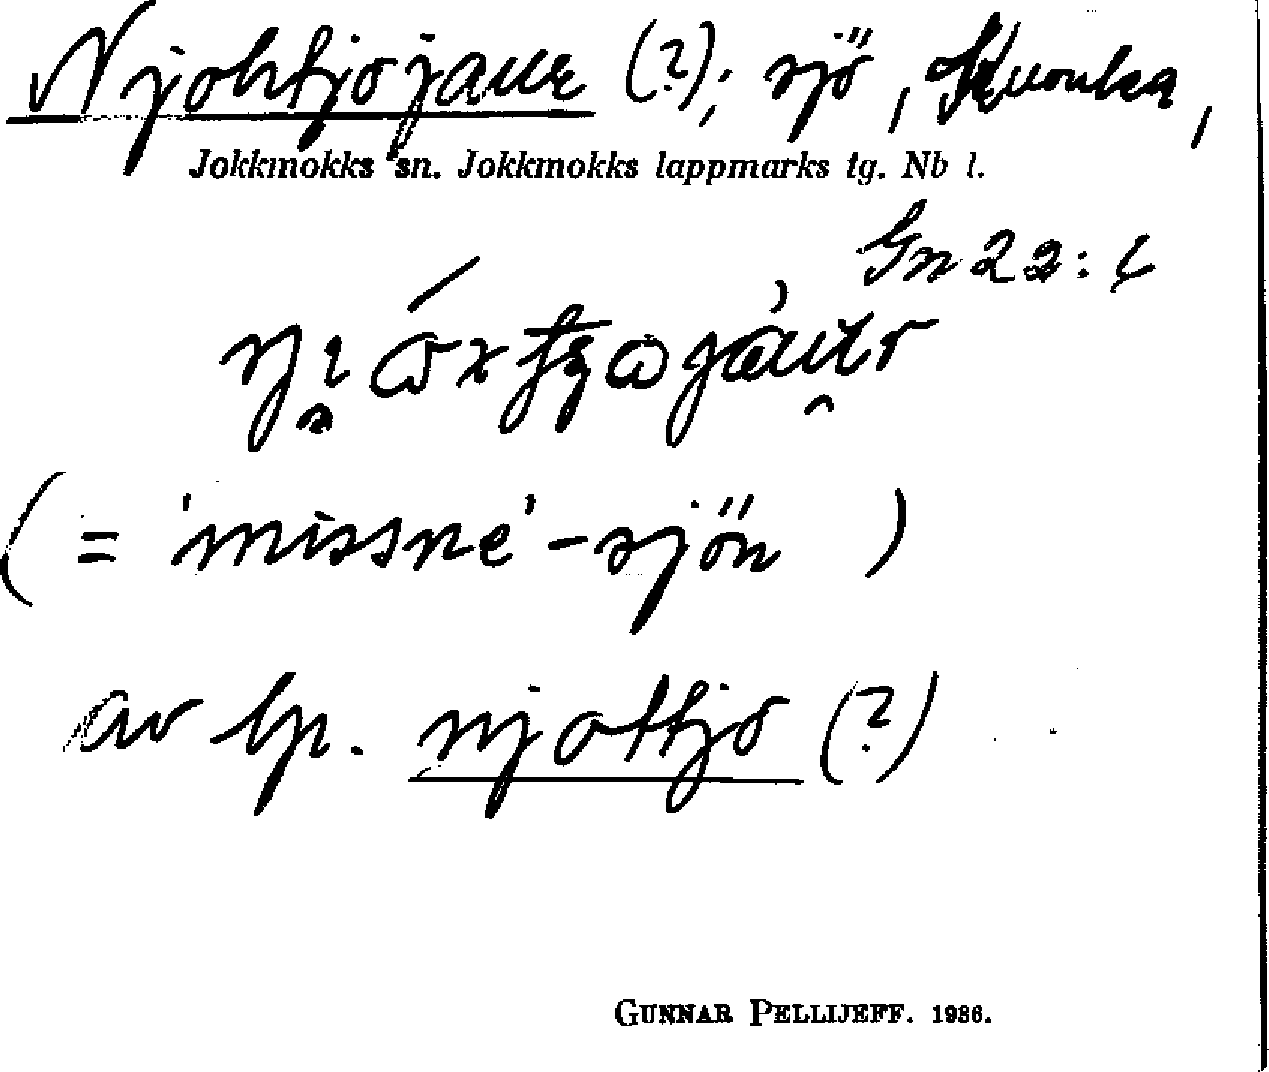 Njohtjojaure (?); sjö, Kuouka,
Jokkmokks sn. Jokkmokks lappmarks tg. Nb l.
Gn 22:
(= 'missne'-sjön )
av lp. njottjo (?)
GUNNAR PELLIJEFF. 1936.